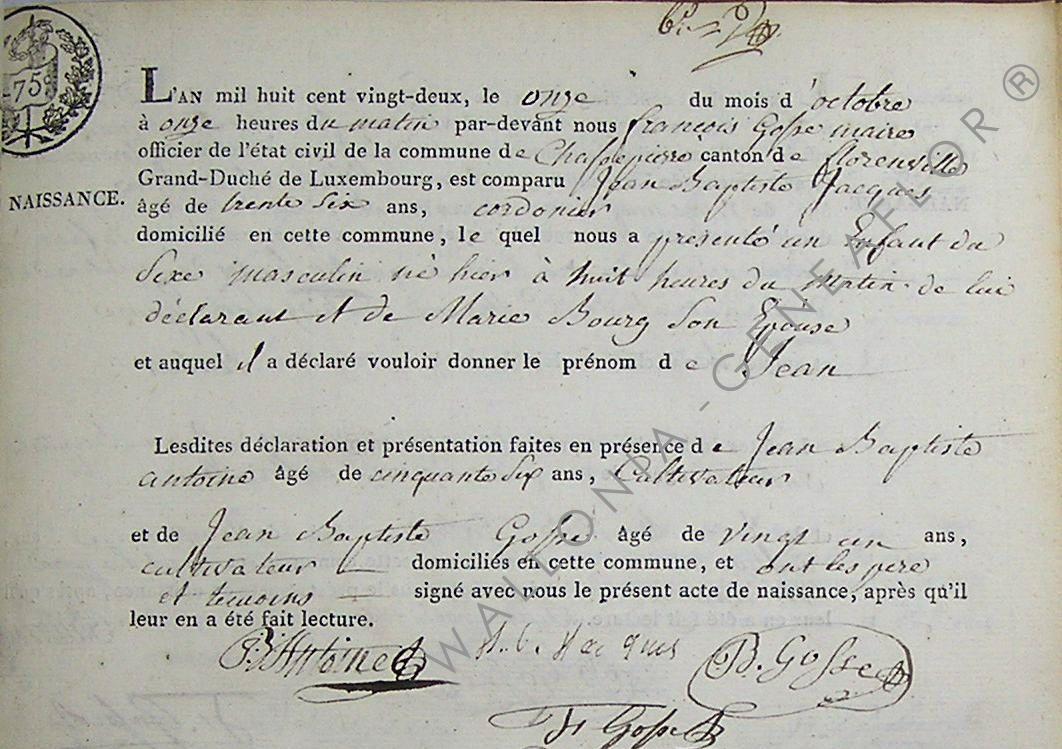 75c
L'AN mil huit cent vingt-deux, le onze du mois d'octobre
à onze heures du matin par-devant nous françois Gosse maire
officier de l'état civil de la commune de Chassepierre canton de florenville
Grand-Duché de Luxembourg, est comparu Jean Baptiste Jacques
NAISSANCE.
âgé de trente six ans, cordonier
domicilié en cette commune, le quel nous a presenté un Enfant du
Sexe masculin né hier à huit heures du matin de lui
déclarant et de Marie Bourg son Epouse
et auquel il a déclaré vouloir donner le prénom de Jean
Lesdites déclaration et présentation faites en présence de Jean Baptiste
antoine âgé de cinquante six ans, Cultivateur
et de Jean Baptiste Gosse âgé de vingt un ans,
cultivateur domiciliés en cette commune, et ont les pere
et temoins signé avec nous le présent acte de naissance, après qu'il
leur en a été fait lecture.
Antoine J. b. Jacques Gosse
Gosse
WALLONIA - GENEAFLOR ®